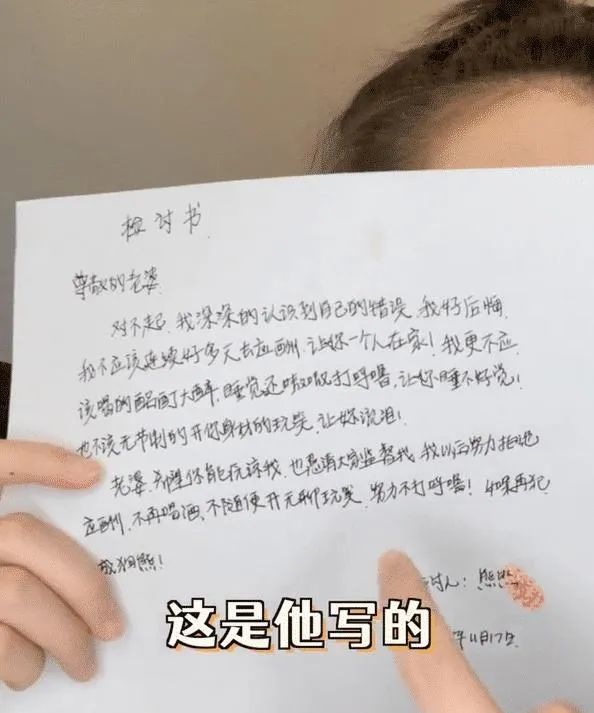 检讨书
尊敬的老婆
对不起,我深深的认识到自己的错误,我好后悔.
我不应该连续好多天去应酬,让你一个人在家!我更不应
该喝的酩酊大醉,睡觉还嗷嗷打呼噜,让你睡不好觉!
也不该无节制的开你身材的玩笑,让你流泪!
老婆,希望你能原谅我,也恳请大家监督我,我以后努力拒绝
应酬,不再喝酒,不随便开无聊玩笑,努力不打呼噜!如果再犯
我狗熊!
讨人:熊
年11月17日
这是他写的